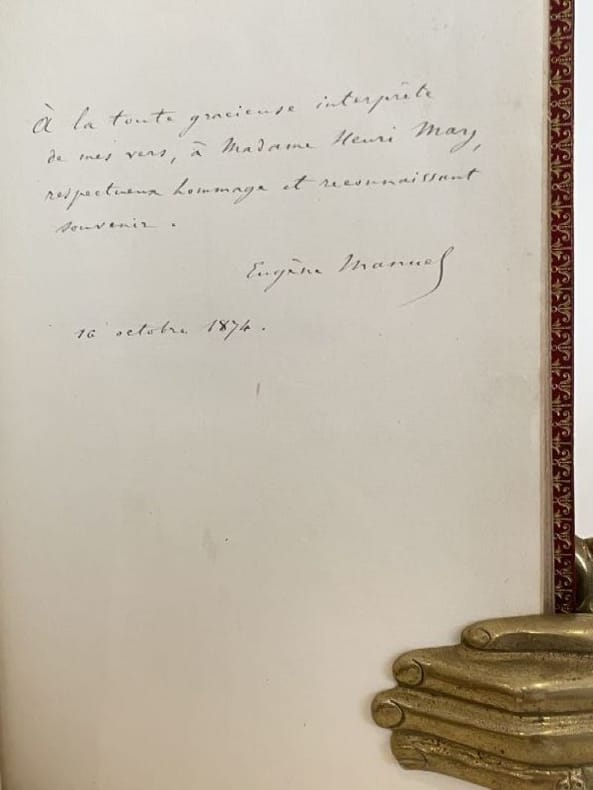 À la toute gracieuse interprête
de mes vers, à Madame Henri Mary,
respectueux hommage et reconnaissant
souvenir.
Eugène Manuel
16 octobre 1874.